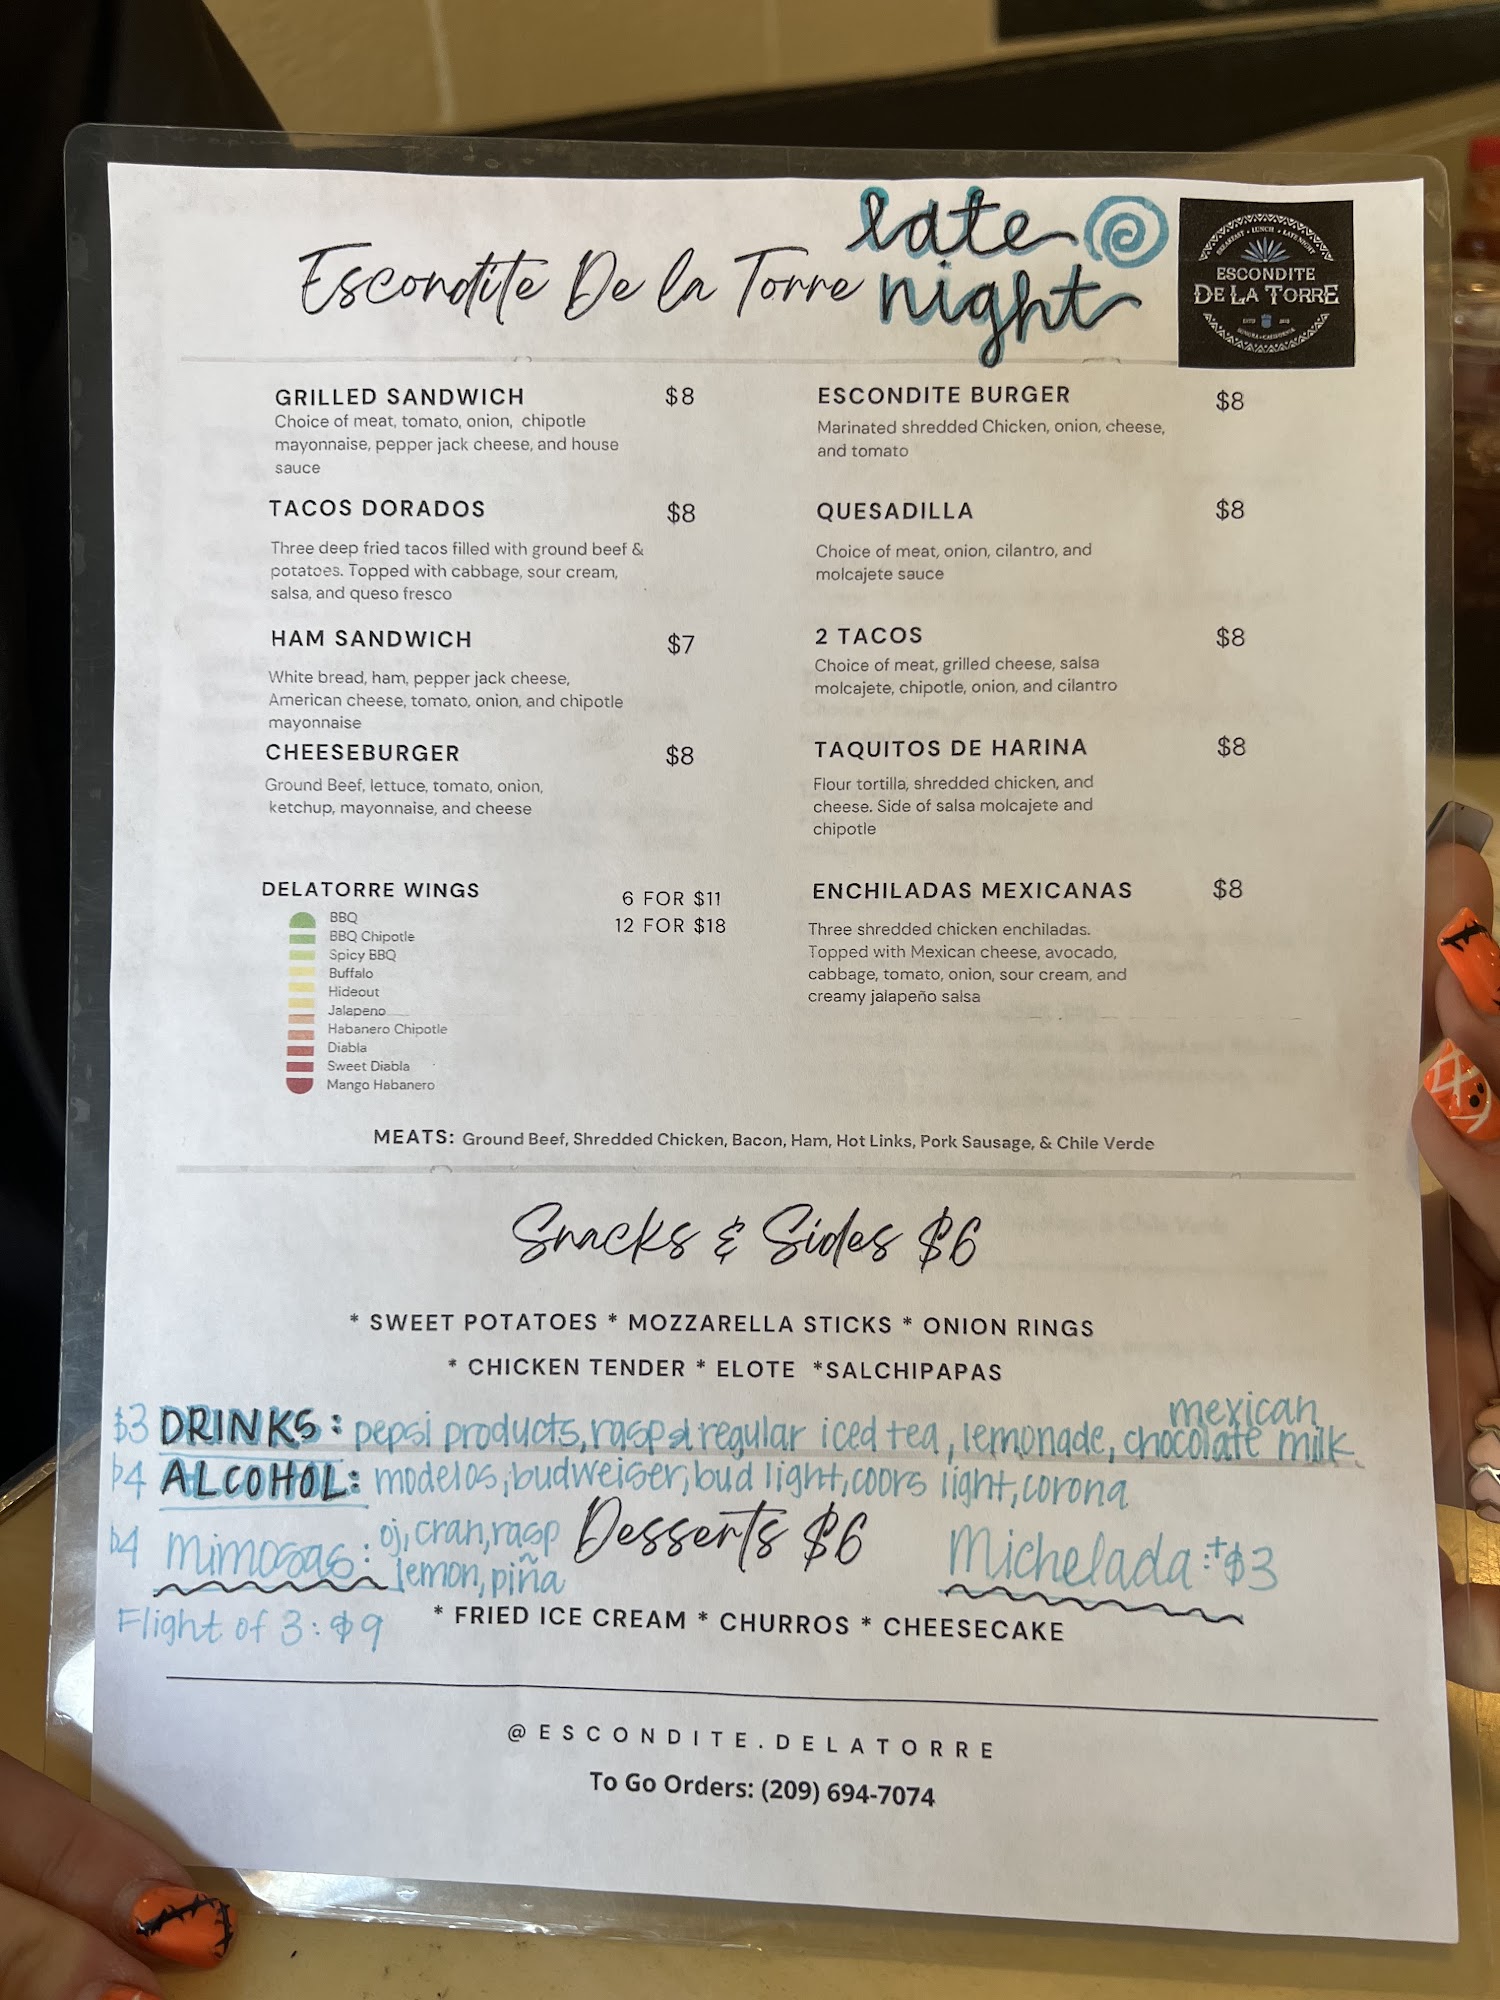 Escondite De la Torre
late
night
BREAKFAST • LUNCH • LATE NIGHT
ESCONDITE
DE LA TORRE
SONORA • CALIFORNIA
GRILLED SANDWICH $8
Choice of meat, tomato, onion, chipotle
mayonnaise, pepper jack cheese, and house
sauce
TACOS DORADOS $8
Three deep fried tacos filled with ground beef &
potatoes. Topped with cabbage, sour cream,
salsa, and queso fresco
HAM SANDWICH $7
White bread, ham, pepper jack cheese,
American cheese, tomato, onion, and chipotle
mayonnaise
CHEESEBURGER $8
Ground Beef, lettuce, tomato, onion,
ketchup, mayonnaise, and cheese
DELATORRE WINGS 6 FOR $11
12 FOR $18
BBQ
BBQ Chipotle
Spicy BBQ
Buffalo
Hideout
Jalapeno
Habanero Chipotle
Diabla
Sweet Diabla
Mango Habanero
ESCONDITE BURGER $8
Marinated shredded Chicken, onion, cheese,
and tomato
QUESADILLA $8
Choice of meat, onion, cilantro, and
molcajete sauce
2 TACOS $8
Choice of meat, grilled cheese, salsa
molcajete, chipotle, onion, and cilantro
TAQUITOS DE HARINA $8
Flour tortilla, shredded chicken, and
cheese. Side of salsa molcajete and
chipotle
ENCHILADAS MEXICANAS $8
Three shredded chicken enchiladas.
Topped with Mexican cheese, avocado,
cabbage, tomato, onion, sour cream, and
creamy jalapeño salsa
MEATS: Ground Beef, Shredded Chicken, Bacon, Ham, Hot Links, Pork Sausage, & Chile Verde
Snacks & Sides $6
* SWEET POTATOES * MOZZARELLA STICKS * ONION RINGS
* CHICKEN TENDER * ELOTE *SALCHIPAPAS
mexican
$3 DRINKS: pepsi products, rasp & regular iced tea, lemonade, chocolate milk
$4 ALCOHOL: modelos, budweiser, bud light, coors light, corona
$4 mimosas: oj, cran, rasp
lemon, piña
Desserts $6
Michelada: +$3
Flight of 3: $9
* FRIED ICE CREAM * CHURROS * CHEESECAKE
@ESCONDITE.DELATORRE
To Go Orders: (209) 694-7074